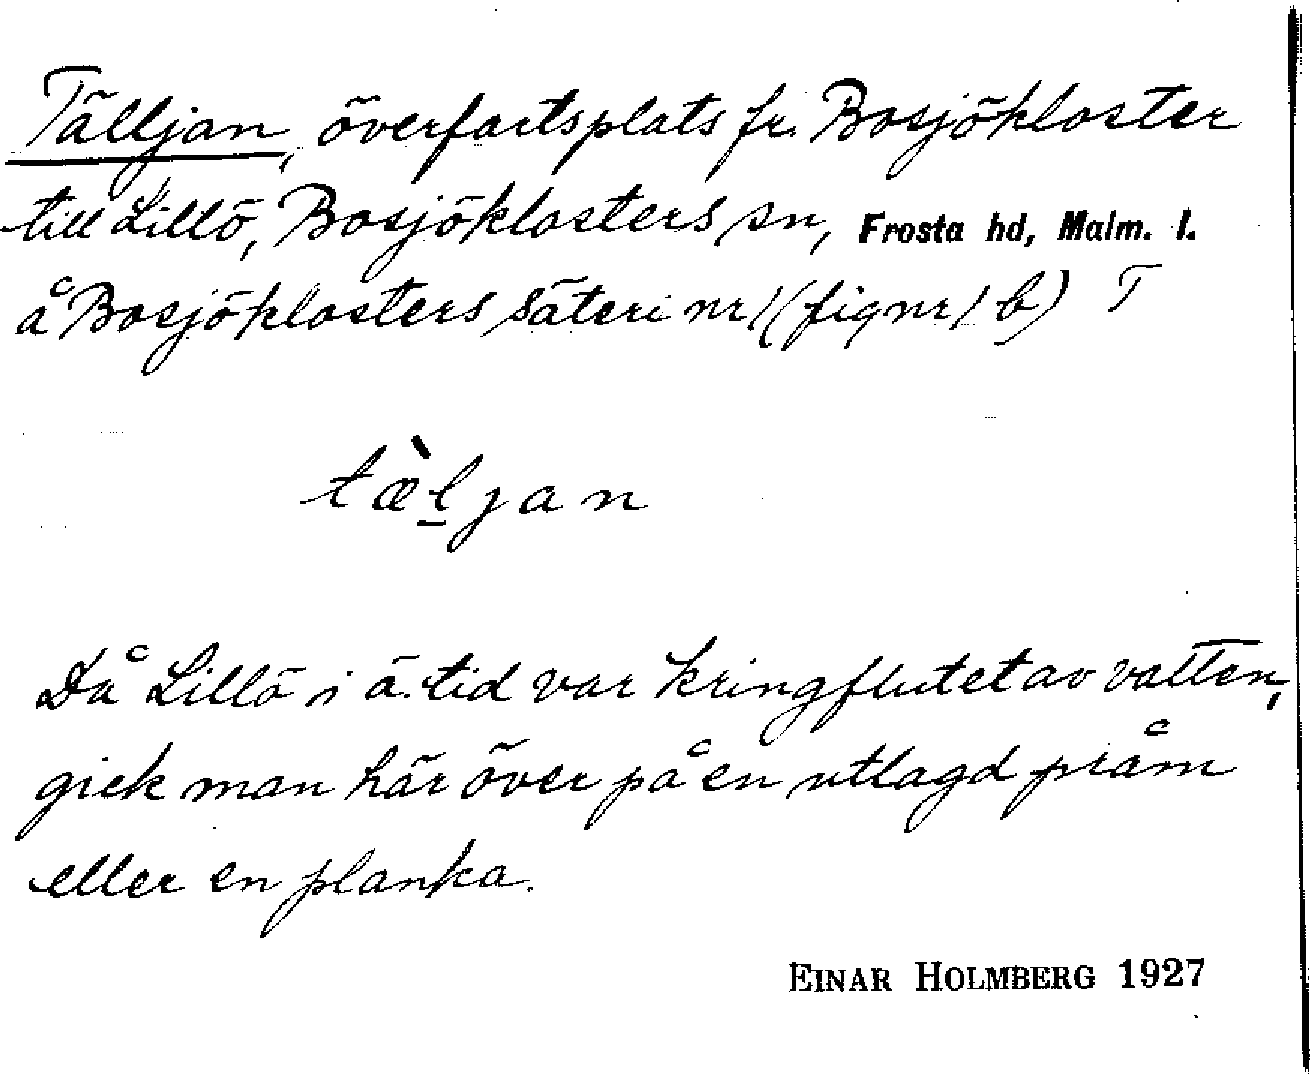 Tälljan, överfartsplats fr. Bosjökloster
till Lillö, Bosjöklosters sn, Frosta hd, Malm. l.
å Bosjöklosters säteri nr 1 (fig nr 1 b) T
tæ̀ljan
Då Lillö i ä. tid var kringflutet av vatten,
gick man här över på en utlagd pråm
eller en planka.
EINAR HOLMBERG 1927